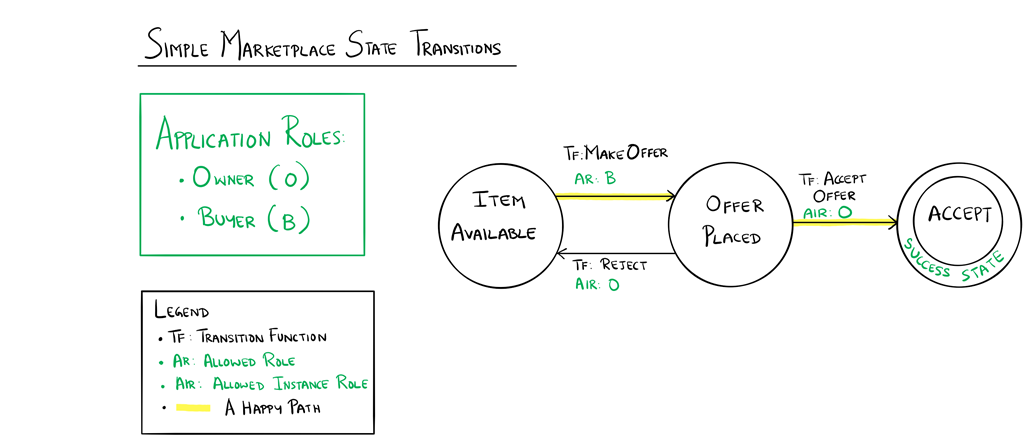 SIMPLE MARKETPLACE STATE TRANSITIONS
APPLICATION ROLES:
• OWNER (O)
• BUYER (B)
LEGEND
• TF: TRANSITION FUNCTION
• AR: ALLOWED ROLE
• AIR: ALLOWED INSTANCE ROLE
• A HAPPY PATH
ITEM
AVAILABLE
TF: MAKE OFFER
AR: B
TF: REJECT
AIR: O
OFFER
PLACED
TF: ACCEPT
OFFER
AIR: O
ACCEPT
SUCCESS STATE